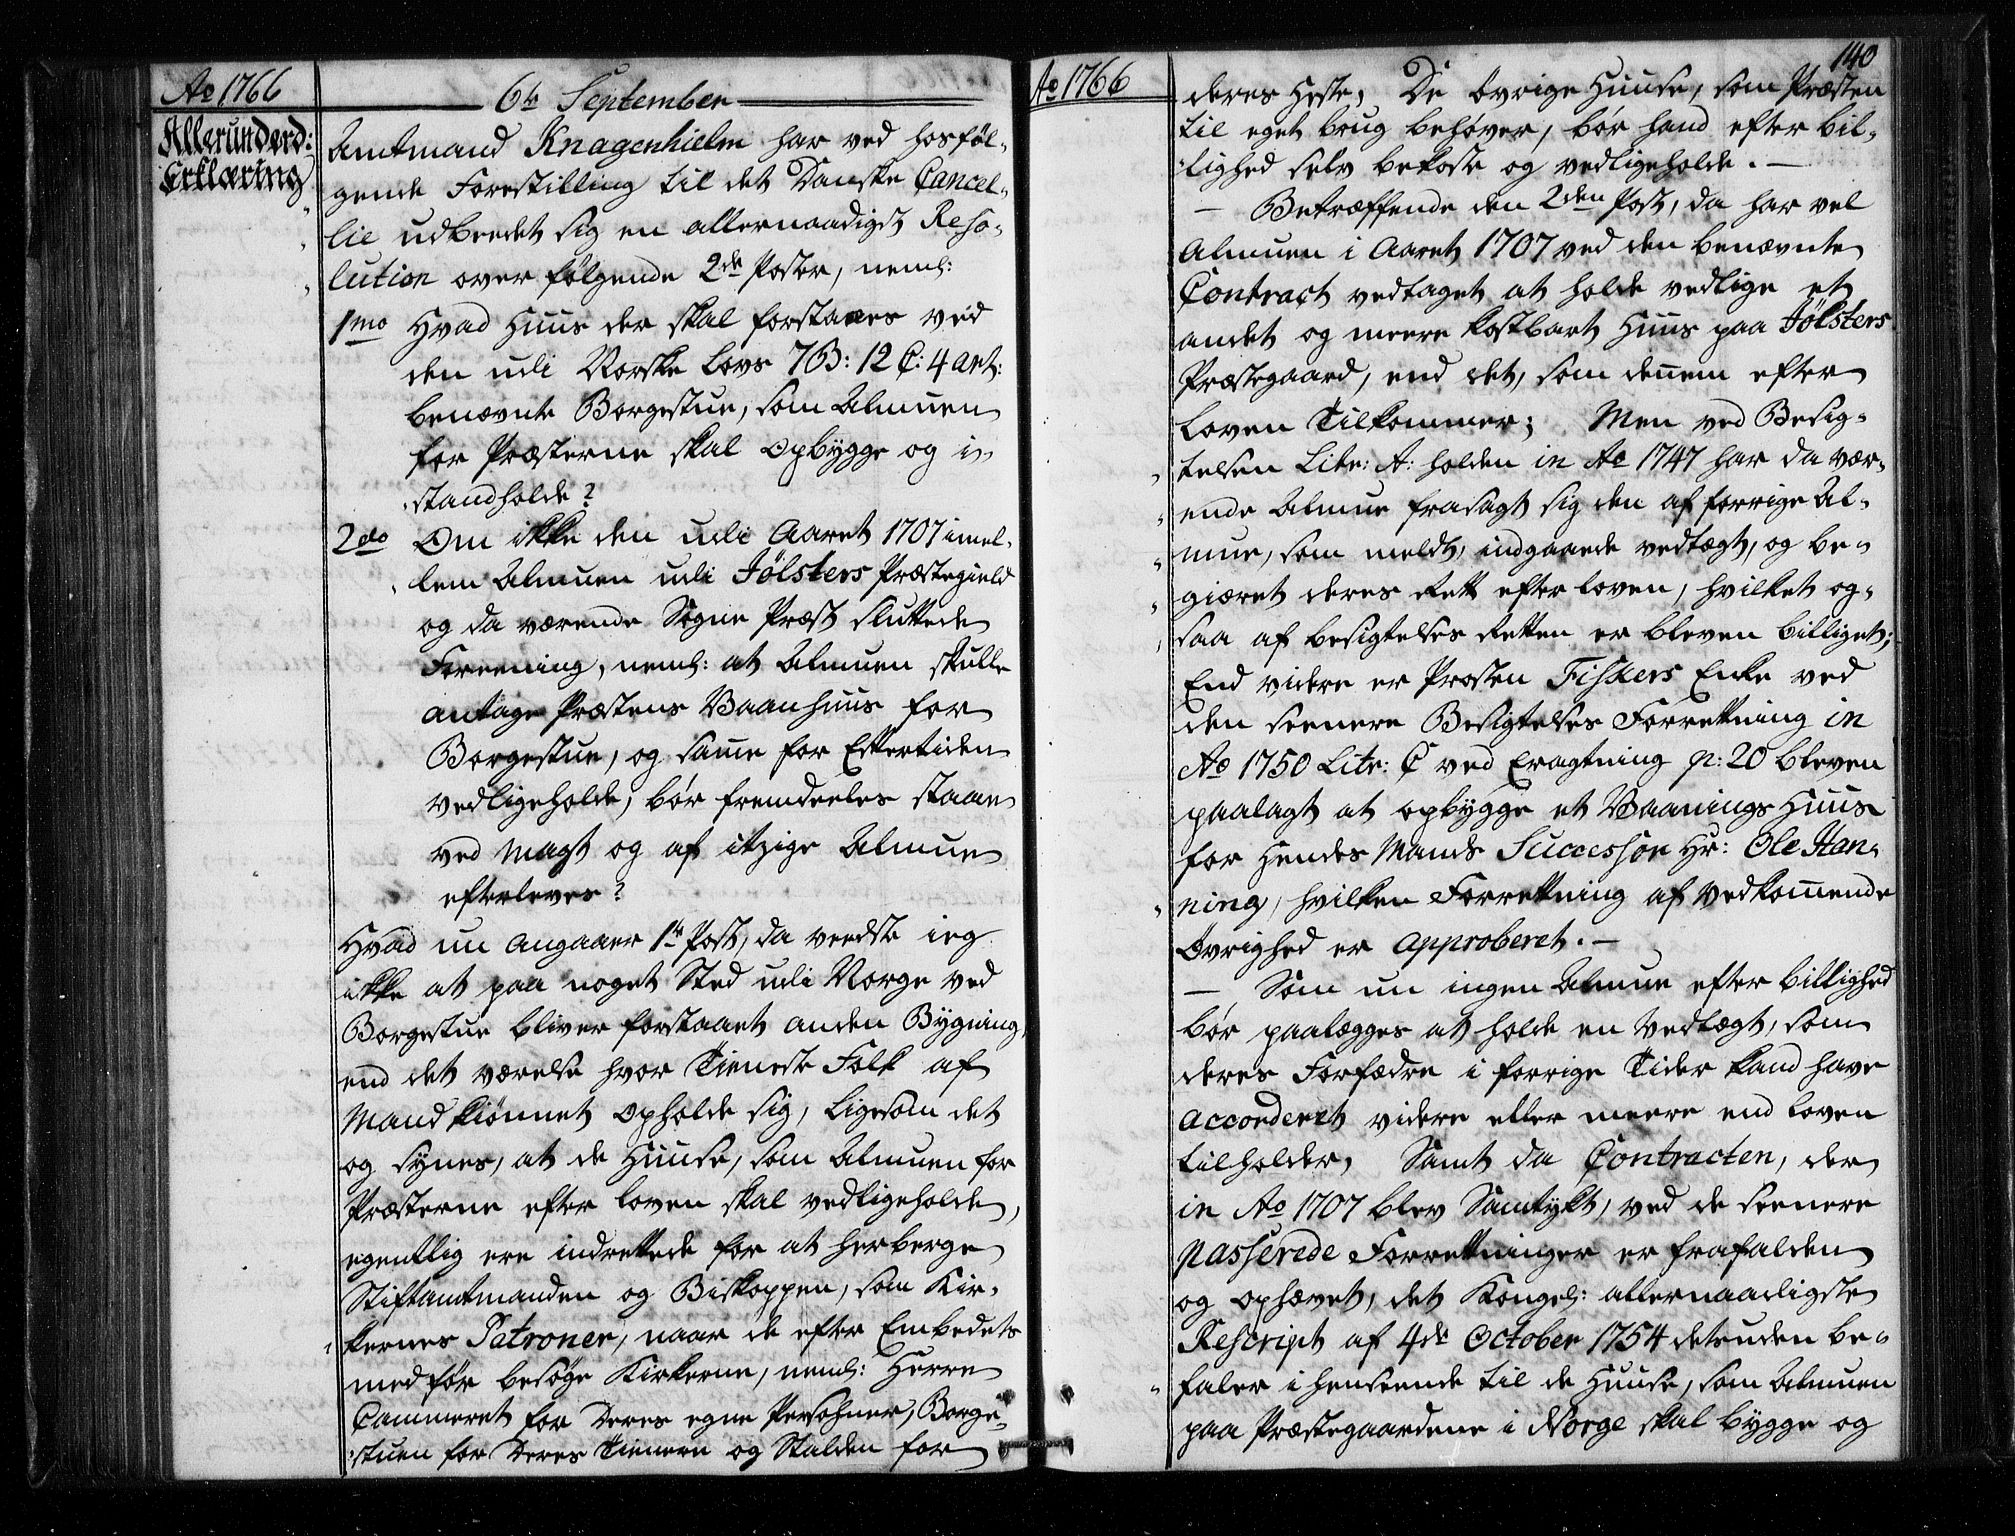 Ao 1766
6te September
Allerunderd:
Erklæring
Amtmand Knagenhielm har ved hosføl-
gende Forestilling til det Danske Cancel-
lie udbeedet sig en allernaadigst Reso-
lution over følgende 2de Poster, neml:
1mo Hvad Huus der skal forstaaes ved
den udi Norske Lovs 7B: 12 C: 4 art:
benævnte Borgestue, som Almuen
for Præsterne skal opbygge og i-
standholde?
2do Om ikke den udi Aaret 1707 imel-
lem Almuen udi Jølsters Præstegield
og da værende Sogne Præst sluttede
Foreening, neml: at Almuen skulle
antage Præstens Vaanhuus for
Borgestue, og samme for Eftertiden
vedligeholde, bør fremdeeles staae
ved magt og af itzige Almue
efterleves?
Hvad nu angaaer 1te Post, da veedste ieg
ikke at paa noget Sted udi Norge ved
Borgestue bliver forstaaet anden Bygning,
end det værelse hvor Tieneste Folk af
Mandkiønnet opholde sig, ligesom det
og synes, at de Huuse, som Almuen for
Præsterne efter loven skal vedligeholde,
egentlig ere indrettede for at herberge
Stiftamtmanden og Biskoppen, som Kir-
kernes Patroner, naar de efter Embedets
medfør besøge Kirkerne, neml: Herre
Cammeret for Deres egne Persohner, Borge-
stuen for Deres Tienere og Stalden for
Ao 1766
140
deres Heste, De øvrige Huuse, som Præsten
til eget brug behøver, bør hand efter bil-
lighed selv bekoste og vedligeholde. -
- Betræffende den 2den Post, da har vel
Almuen i Aaret 1707 ved den benævnte
Contract vedtaget at holde vedlige et
andet og meere kostbart Huus paa Jølsters
Præstegaard, end det, som dennem efter
loven tilkommer; Men ved Besig-
telsen Litr: A: holden in Ao 1747 har da vær-
ende Almue frasagt sig den af forrige Al-
mue, som meldt, indgaaede vedtægt, og be-
giæret deres Rett efter loven, hvilket og-
saa af besigtelses Retten er bleven billiget;
End videre er Prosten Fiskers Enke ved
den seenere Besigtelses Forrettning in
Ao 1750 Litr: C ved Eragtning p: 20 bleven
paalagt at opbygge et Vaanings Huus
for Hendes Mands Successor Hr: Ole Han-
ning, hvilken Forrettning af vedkommende
Øvrighed er approberet. -
- Som nu ingen Almue efter billighed
bør paalægges at holde en vedtægt, som
deres Forfædre i forrige Tider kand have
accorderet videre eller meere end loven
tilholder, Samt da Contracten, der
in Ao 1707 blev Samtykt, ved de seenere
passerede Forrettninger er frafalden
og ophævet, det Kongel: allernaadigste
Rescript af 4de October 1754 desuden be-
faler i henseende til de Huuse, som Almuen
paa Præstegaardene i Norge skal bygge og